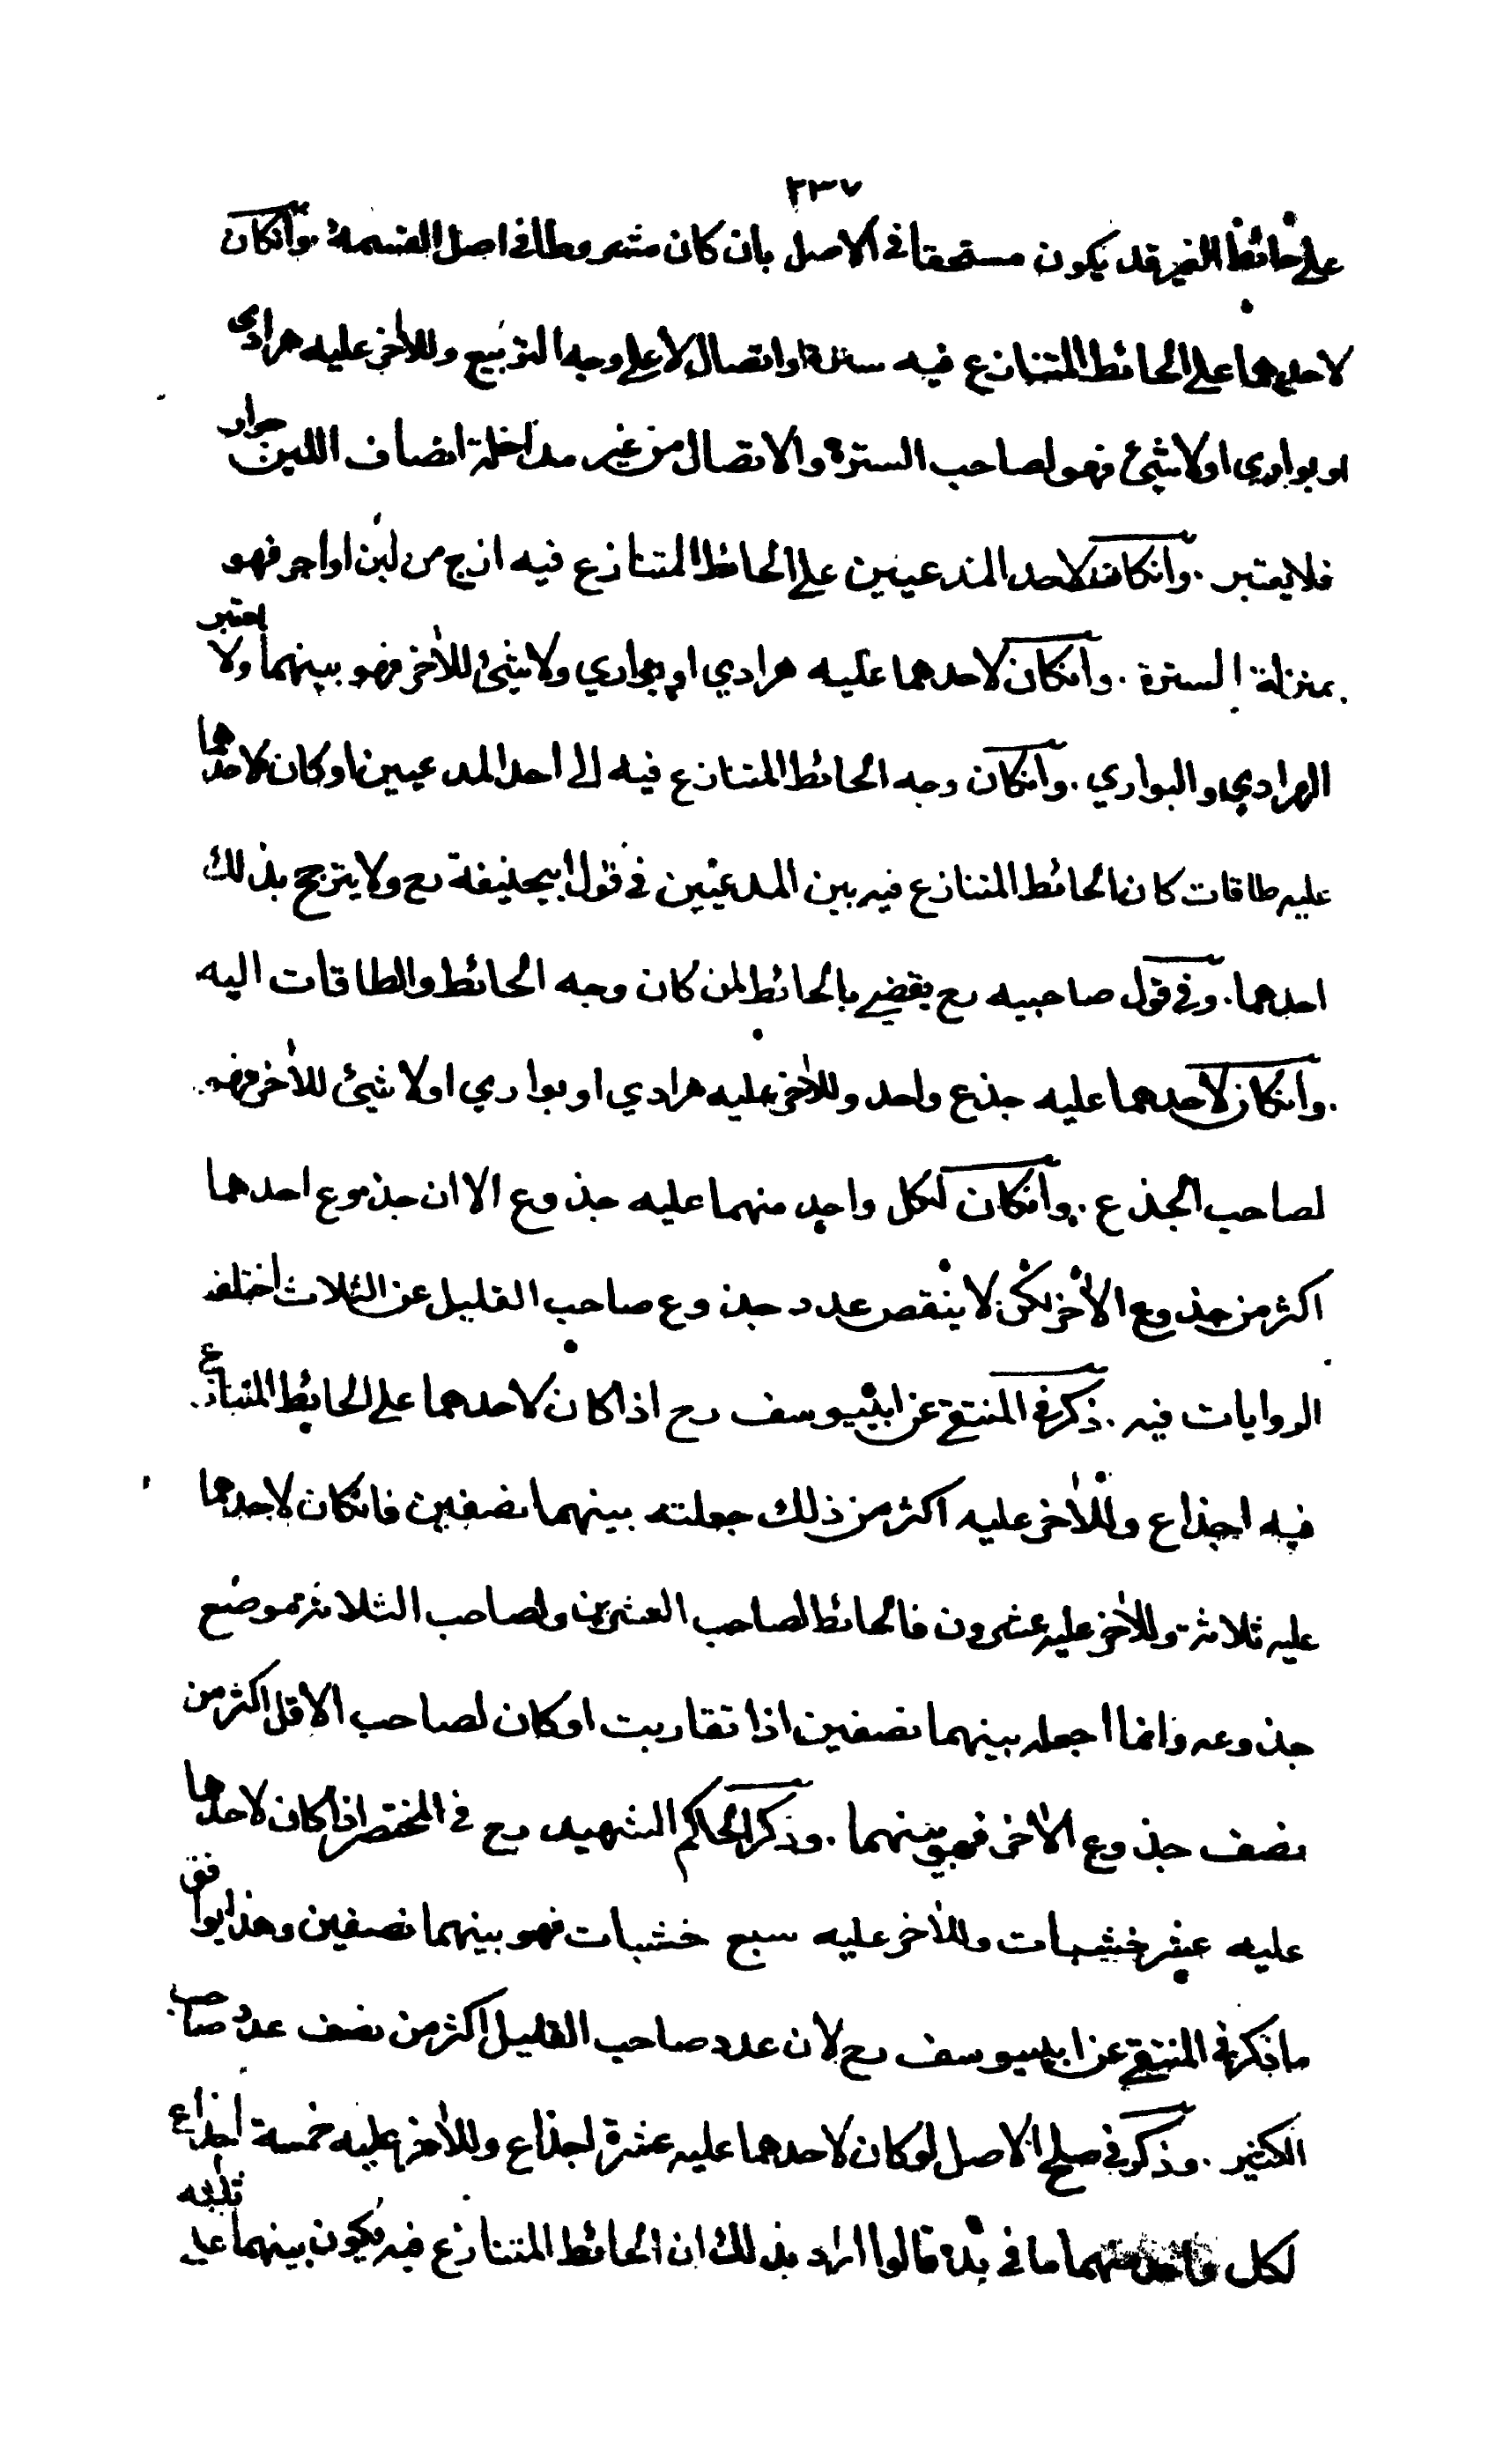 ٢٣٧
على حائط الغير قد يكون مستحقا في الاصل بان كان مشروطا في اصل القسمة . وانكان
لاحدهما على الحائط المتنازع فيه سترة او اتصال لا على وجه التربيع وللآخر عليه هرادى
او بواري او لا شئ فهو لصاحب السترة والاتصال من غير مداخلة انصاف اللبن جوار
فلا يعتبر . وانكان لاحد المدعيين على الحائط المتنازع فيه ازج من لبن او اجر فهو
بمنزلة السترة . وانكان لاحدهما عليه هرادي او بواري ولا شئ للآخر فهو بينهما ولا يعتبر
الهرادي والبواري . وانكان وجه الحائط المتنازع فيه الى احد المدعيين او كان لاحدهما
عليه طاقات كان الحائط المتنازع فيه بين المدعيين في قول ابيحنيفة رح ولا يترجح بذلك
احدهما . وفي قول صاحبيه رح يقضي بالحائط لمن كان وجه الحائط والطاقات اليه
. وانكان لاحدهما عليه جذع واحد وللآخر عليه هرادي او بواري او لا شئ للآخر فهو
لصاحب الجذع . وانكان لكل واحد منهما عليه جذوع الا ان جذوع احدهما
اكثر من جذوع الآخر لكن لا ينقص عدد جذوع صاحب القليل عن الثلاث اختلفت
الروايات فيه . ذكر في المنتقى عن ابييوسف رح اذا كان لاحدهما على الحائط المتنازع
فيه اجذاع وللآخر عليه اكثر من ذلك جعلته بينهما نصفين فانكان لاحدهما
عليه ثلاثة وللآخر عليه عشرون فالحائط لصاحب العشرين ولصاحب الثلاثة موضع
جذوعه وانما اجعله بينهما نصفين اذا تقاربت او كان لصاحب الاقل اكثر من
نصف جذوع الآخر فهو بينهما . وذكر الحاكم الشهيد رح في المختصر اذا كان لاحدهما
عليه عشر خشبات وللآخر عليه سبع خشبات فهو بينهما نصفين وهذا يوافق
ما ذكر في المنتقى عن ابييوسف رح لان عدد صاحب القليل اكثر من نصف عدد صاحب
الكثير . وذكر في صلح الاصل لو كان لاحدهما عليه عشرة اجذاع وللآخر عليه خمسة اجذاع
لكل واحد منهما ما في يده قالوا اراد بذلك ان الحائط المتنازع فيه يكون بينهما على